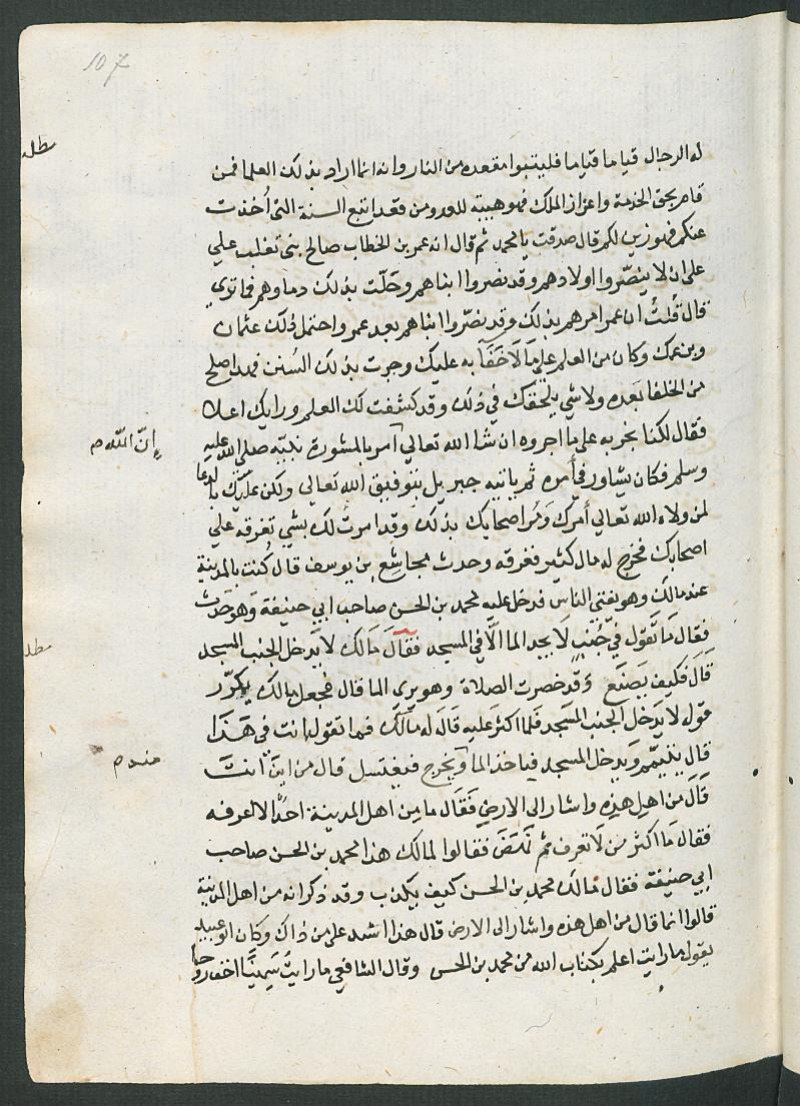 107
له الرجال قياما قياما فليتبوا مقعده من النار وانه انما اراد بذلك العلما فمن
قام بحق الخدمة واعزاز الملك فهو هيبة للعدو ومن قعد اتبع السنة التى أُخذت
عنكم فهو زين لكم قال صدقت يا محمد ثم قال انه عمر بن الخطاب صالح بنى تغلب علي
على ان لا ينصّروا اولادهم وقد نصروا ابناهم وحلّت بذلك دماوهم فما تري
قال قُلتُ ان عمر امرهم بذلك وقد نصّروا ابناهم بعد عمر واحتمل ذلك عثمان
وبن عمك وكان من العلم علي ما لَا خَفَآ به عليك وجرت بذلك السُنن فهذا صلح
من الخلفا بَعده ولا شي يلحقك في ذلك وقد كشفت لك العلم ورايك اعلا
فقال لكنا نجريه على ما اجروه ان شا الله تعالي أمر بالمشورة نبيّه صلى الله عليه
وسلم فكان يشاور في أمره ثم ياتيه جبريل بتوفيق الله تعالي ولكن عليك بالدعا
لمن ولاه الله تعالي أمرك وَمُر اصحابك بذلك وقد امرت لك بشي تفرقه علي
اصحابك فخرج له مال كثير ففرقه وحدث مجاشع بن يوسف قال كُنت بالمدينة
عند مالك وهو يفتي الناس فدخل عليه محمد بن الحسن صاحب ابي حنيفة وَهو حَدَث
فقال مَا تَقول في جُنبٍ لَا يجد الما الّا في المسجد فقال مَالك لا يَدخل الجنب المسجد
قَالَ فكيف يصنَع وَقد حضرت الصلاة وهو يري الما قال فجعل مالك يكرّر
قوله لا يَدخل الجنب المَسجد فلما اكثر عليه قَالَ له مَالك فما تقول انت في هَذا
قال يتيمّم وَيدخل المسجد فياخذ الما ويَخرج فيغتسل قال من اينَ انتَ
قَالَ من اهل هذِه واشار الى الارض فقَال ما من اهل المدينة احدٌ الا اعرفه
فقال مَا اكثر من لَا تعرف ثم نَهَضَ فقالوا لمالك هذا محمد بن الحسن صاحب
ابي حنيفة فقال مَالك محمد بن الحسن كيف يكذب وقد ذكر انه من اهل المدينة
قالوا انما قال من اهل هذه واشار الى الارض قال هذا اشد على من ذاك وكان ابو عبيد
يقول ما رايت اعلم بكتاب الله من محمد بن الحسن وقال الشافعي ما رايتُ سَمِينًا اخف روحا
ان الله م